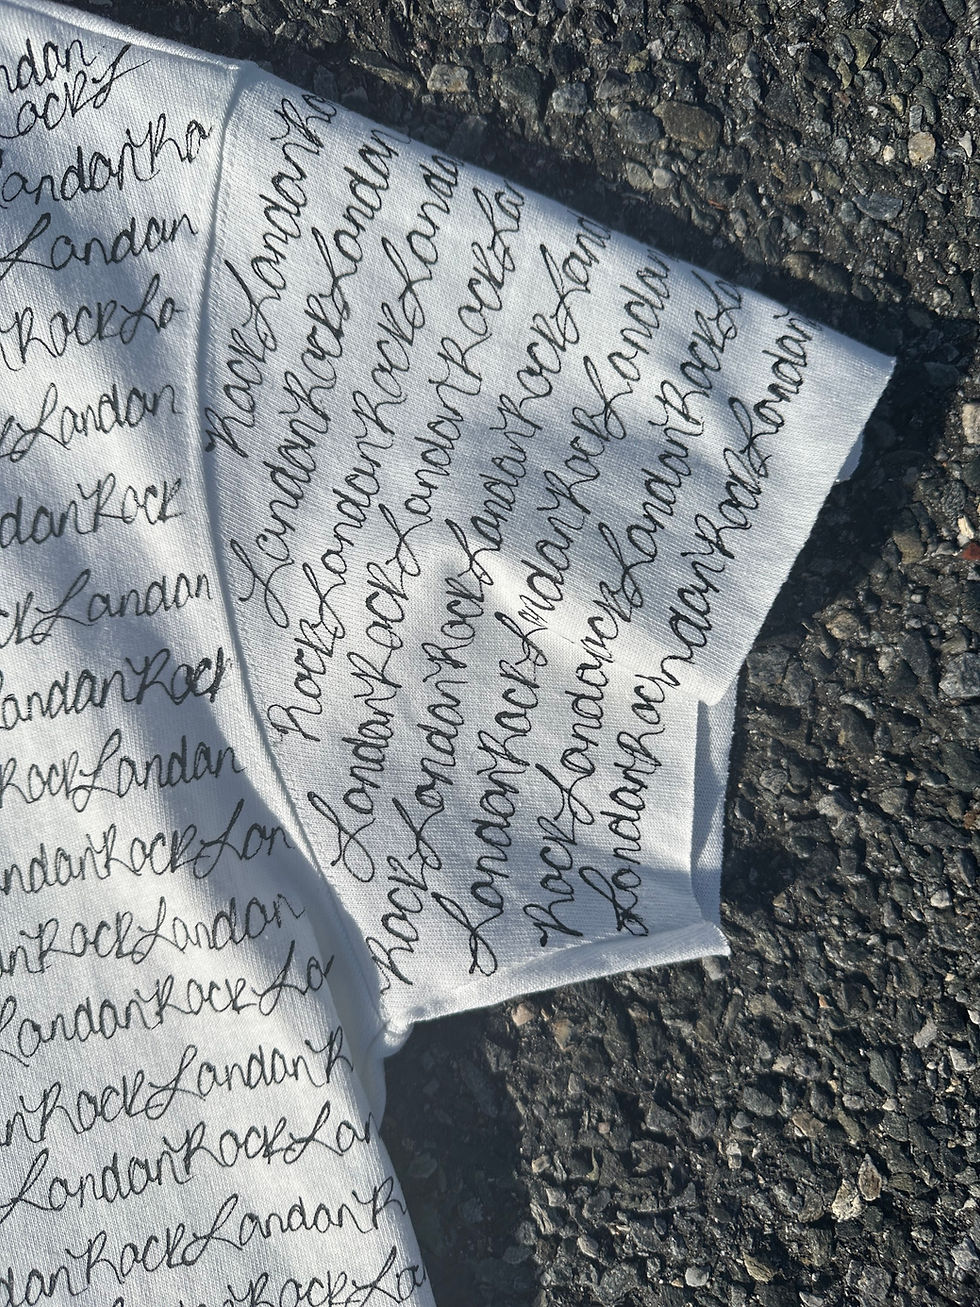 ndan
ocks
andanRo
Landan
RockLa
kLandan
danRock
ckLandan
andanRock
RockLandan
ndanRockLan
anRockLandan
LandanRockLa
nRockLandanR
LandanRockLan
danRockLandanR
RockLa
RockLandanRo
LandanRockLandan
RockLandanRockLanda
LandanRockLandanRockLan
RockLandanRockLandanRockLand
LandanRockLndanRockLandan
RockLandarckLandanRockLa
LandanRocndanRockLandan